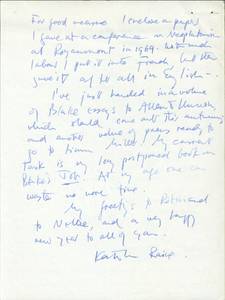 For good measure I enclose a paper
I gave at a conference on Neoplatonism
at Royaumont in 1969. With much
labour I put it into French, but then
gave it after all in English.
I've just handed in a volume
of Blake essays to Allen & Unwin,
which should come out this autumn,
and another volume of papers ready to
go to
task is my long postponed book on
Blake's Job. At my age one can
waste no more time.
My greetings to
to Nellie, and a very happy
new year to all of you.
Kathleen Raine